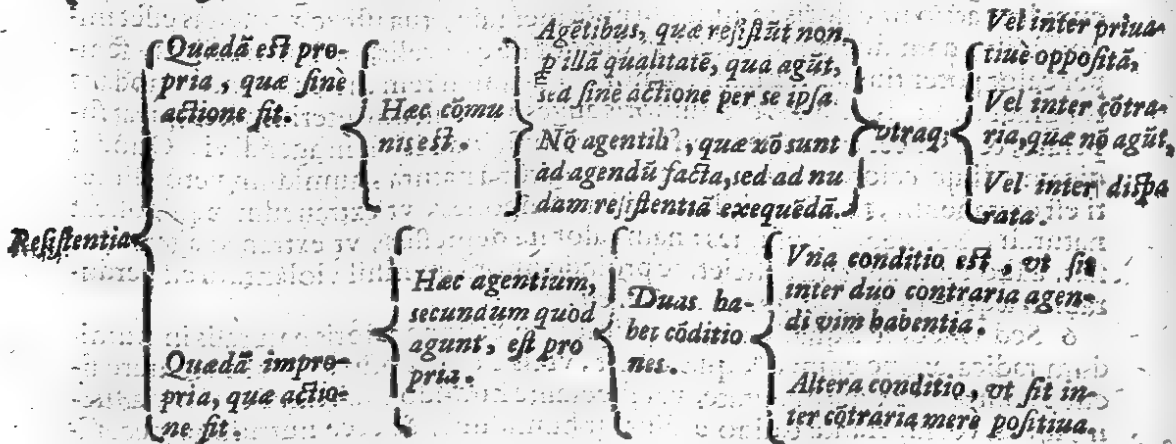 Resistentia
Quædā est pro-
pria, quæ sinè
actione fit.
Hæc cōmu
nis est.
Agētibus, quæ resistūt non
p illā qualitatē, qua agūt,
sed sinè actione per se ipsa
Nō agentib9, quæ nō sunt
ad agendū facta, sed ad nu
dam resistentiā exequēdā.
vtraq;
Vel inter priua-
tiuè oppositā,
Vel inter cōtra-
ria, quæ nō agūt,
Vel inter dispa
rata.
Quædā impro-
pria, quæ actio-
ne fit.
Hæc agentium,
secundum quod
agunt, est pro
pria.
Duas ha-
bet cōditio
nes.
Vna conditio est, vt sit
inter duo contraria agen-
di vim habentia.
Altera conditio, vt sit in-
ter cōtraria merè positiua.